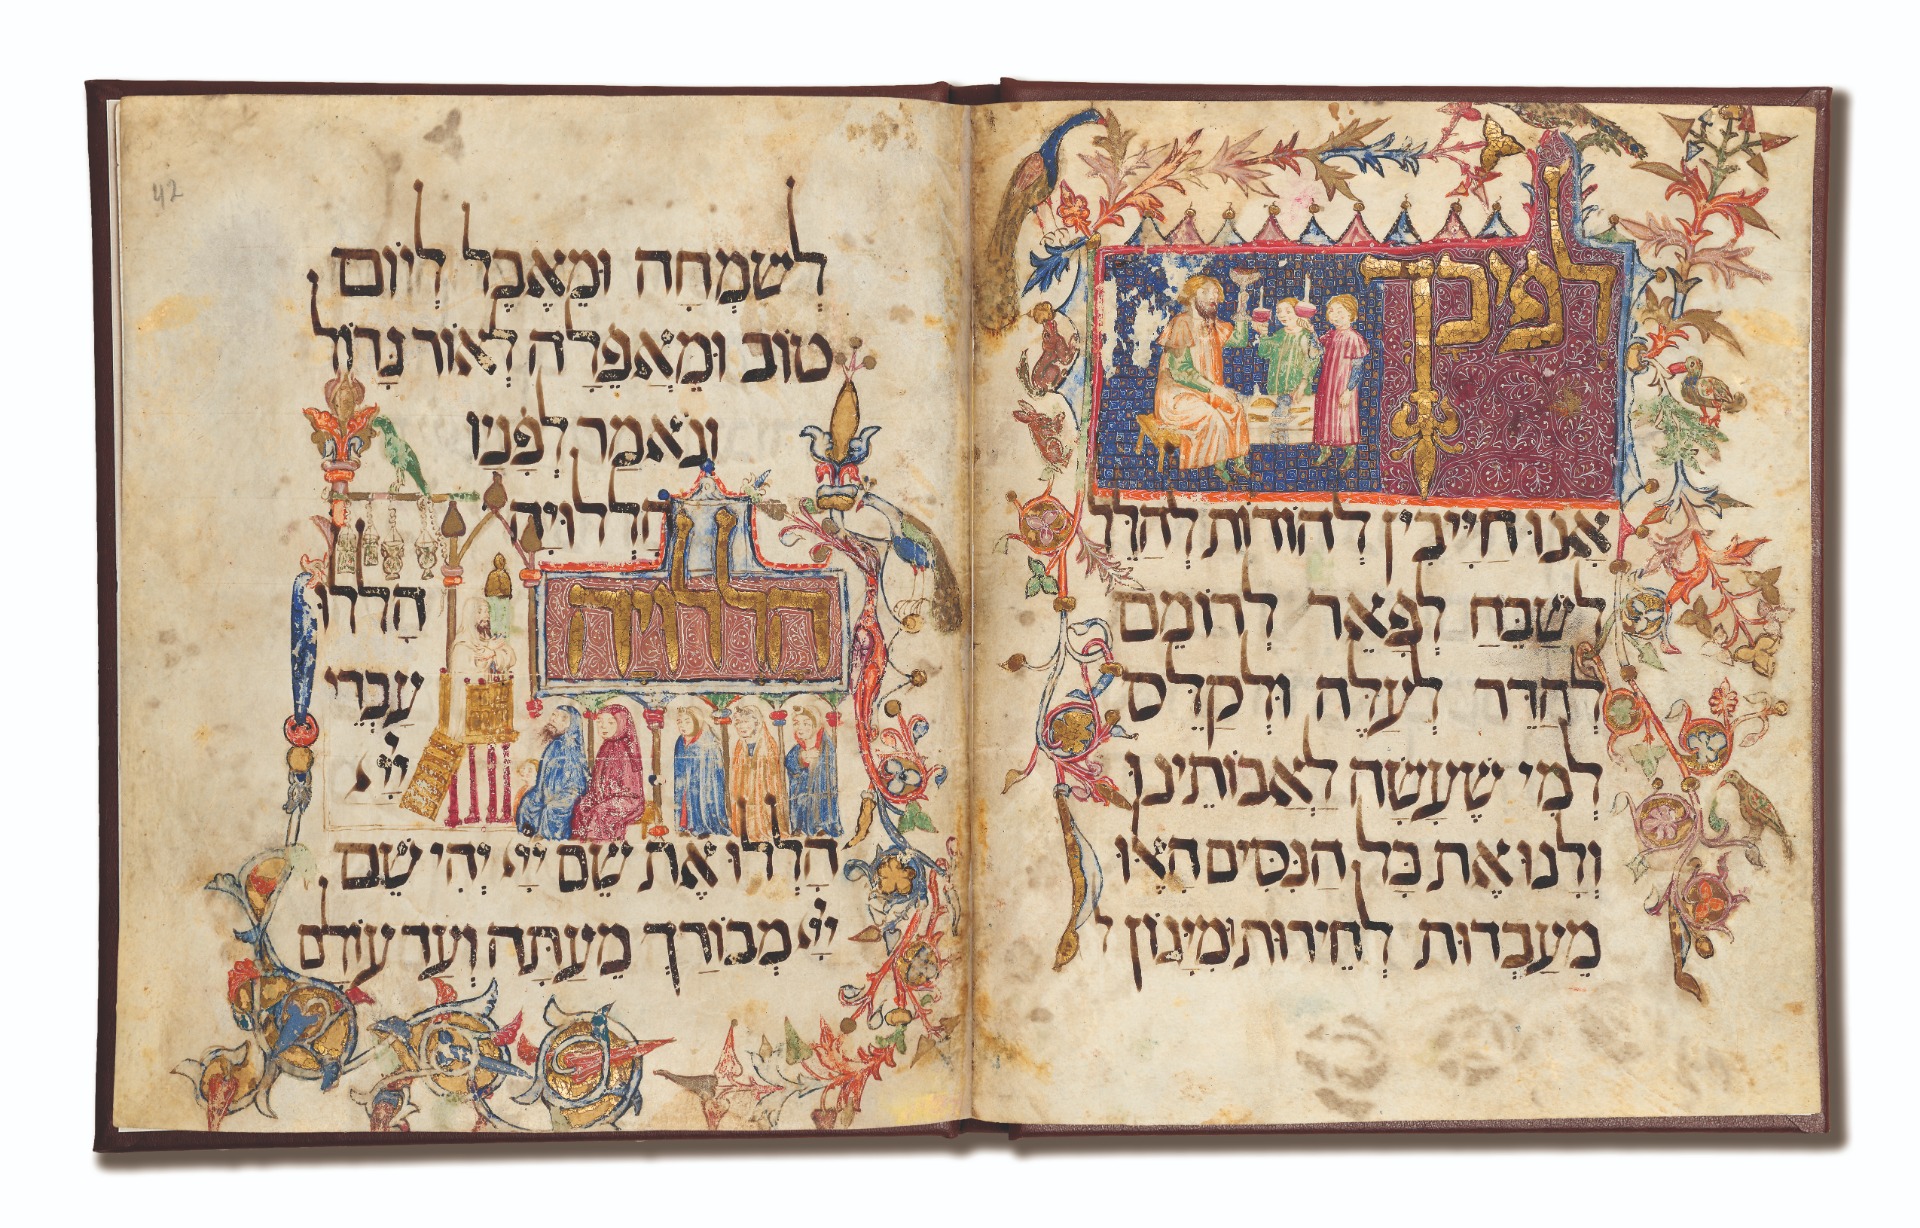 לפיכך
אנו חייבין להודות להלל
לשבח לפאר לרומם
להדר לעלה ולקלס
למי שעשה לאבותינו
ולנו את כל הנסים האלו
מעבדות לחירות ומיגון ל
42
לשמחה ומאבל ליום
טוב ומאפלה לאור גדול
ונאמר לפניו
הללויה
הללויה
הללו
עבדי
ייי
הללו את שם ייי יהי שם
ייי מבורך מעתה ועד עולם